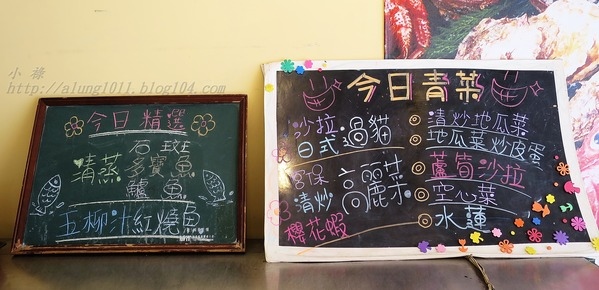 小 祿
http://alung1011.blog104.com
今日精選
清蒸
石斑
多寶魚
鱸魚
五柳汁紅燒魚
今日青菜
沙拉
日式 過貓
宮保
清炒 高麗菜
櫻花蝦
◎清炒地瓜菜
◎地瓜菜炒皮蛋
◎蘆筍沙拉
◎空心菜
◎水蓮